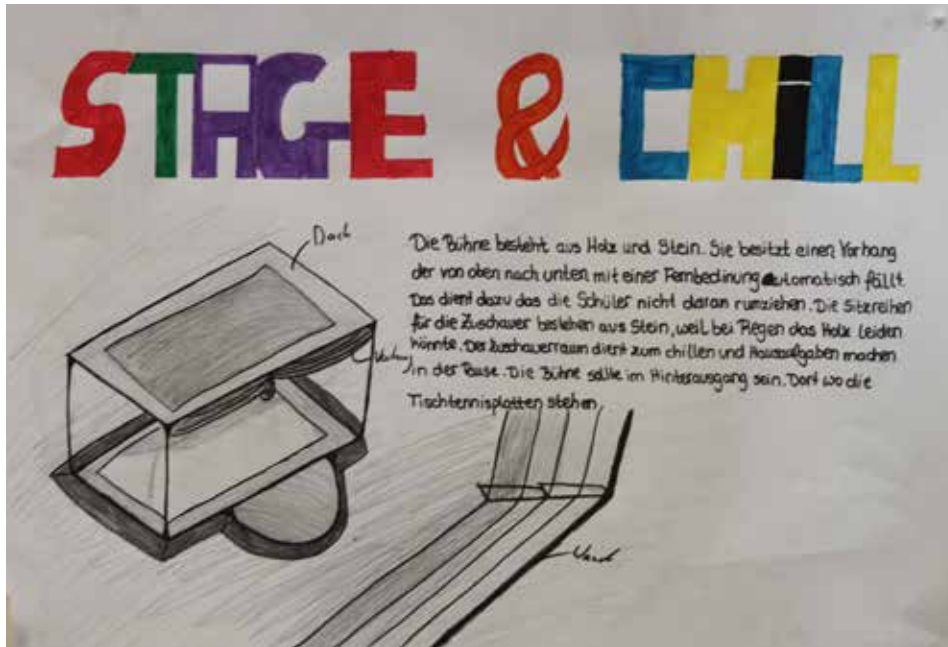 STAGE & CHiLL
Dach
Die Bühne besteht aus Holz und Stein. Sie besitzt einen Vorhang
der von oben nach unten mit einer Fernbedinung automatisch fällt.
Das dient dazu das die Schüler nicht daran rumziehen. Die Sitzreihen
für die Zuschauer bestehen aus Stein, weil bei Regen das Holz leiden
könnte. Der Zuschauerraum dient zum chillen und Hausaufgaben machen
in der Pause. Die Bühne sollte im Hinterausgang sein. Dort wo die
Tischtennisplatten stehen